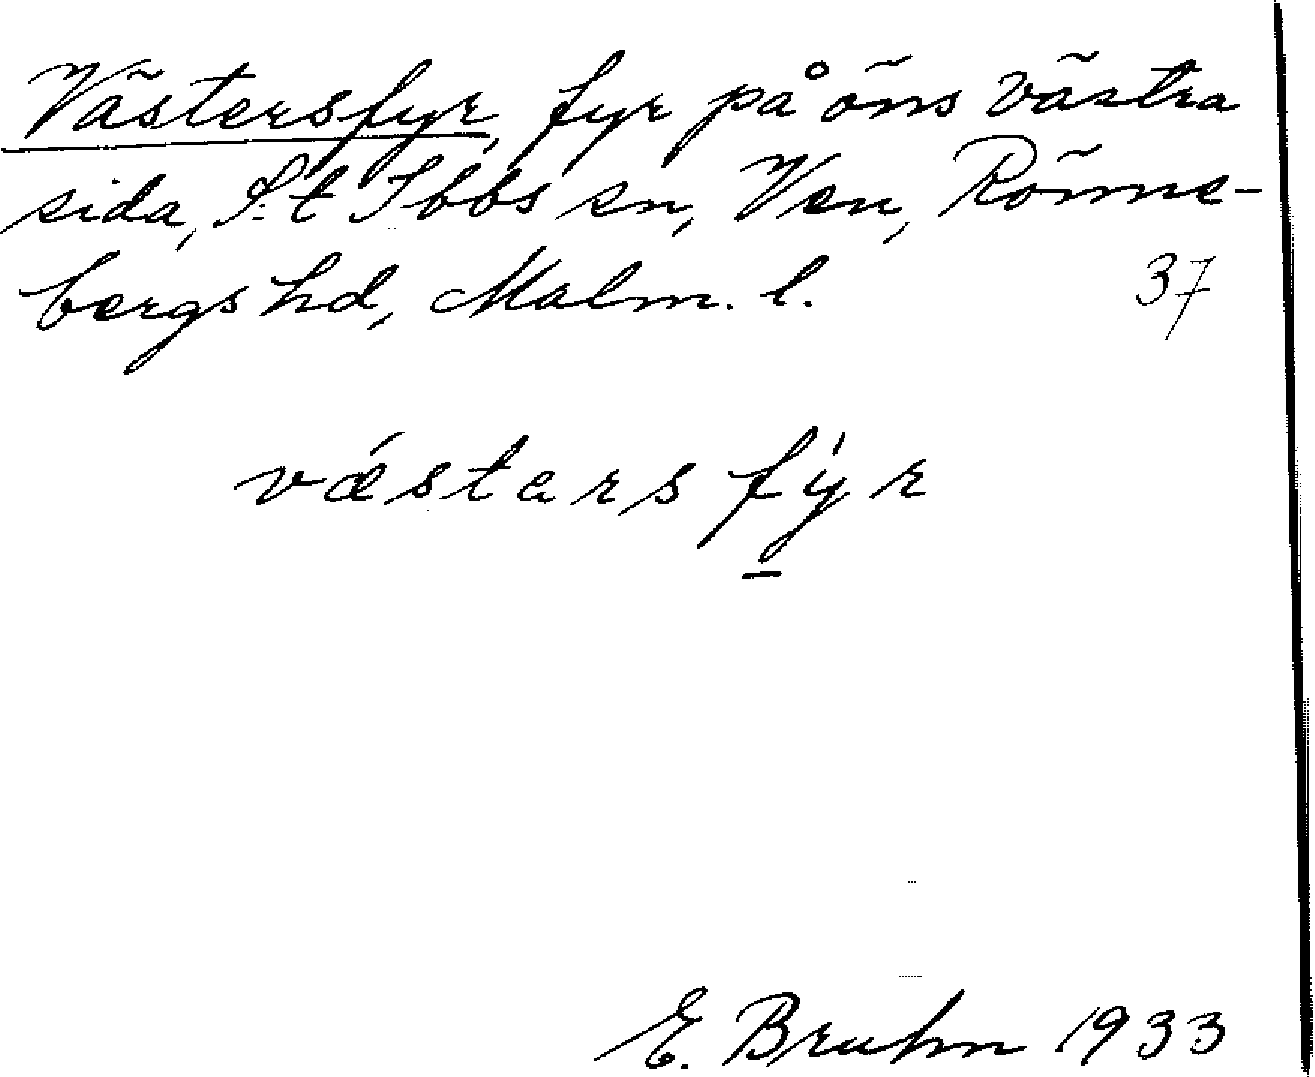 Västersfyr, fyr på öns västra
sida, S:t Ibbs sn, Ven, Rönne-
bergs hd, Malm. l. 37
vǽstars fýr
E. Bruhn 1933